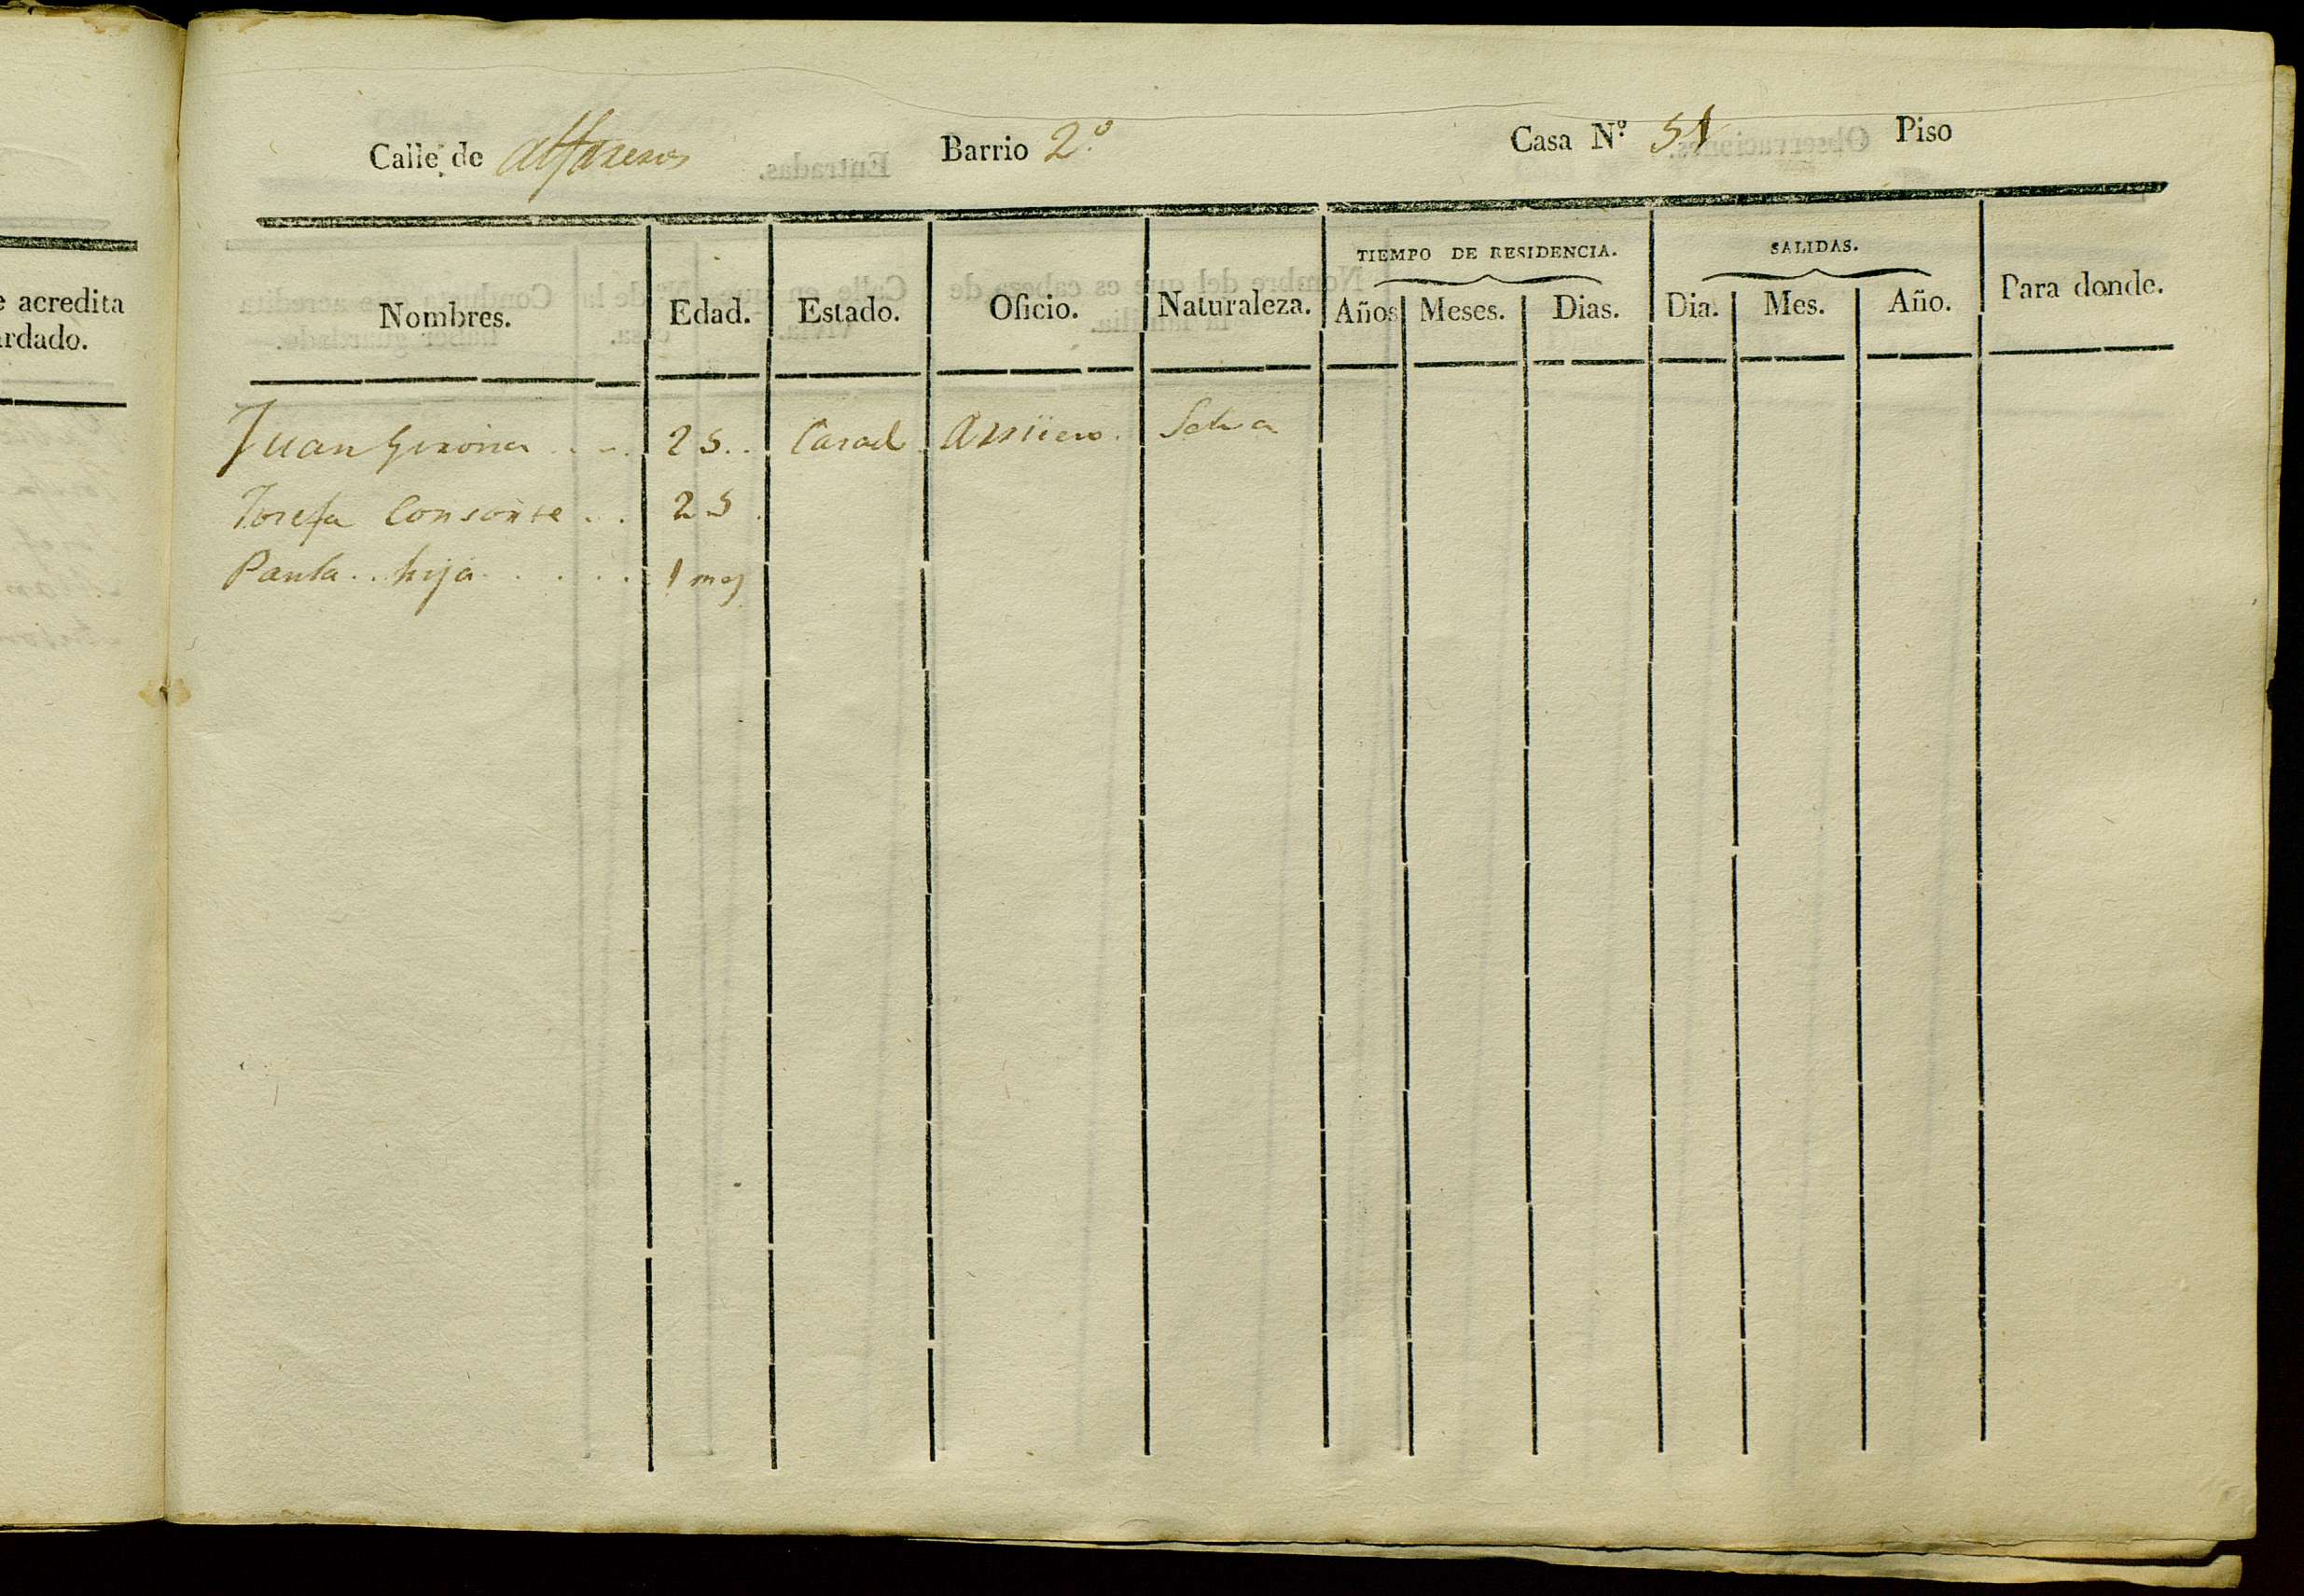 Calle de alfareros Barrio 2.º Casa N.º 51 Piso
e acredita
ardado.
TIEMPO DE RESIDENCIA. SALIDAS.
Nombres. Edad. Estado. Oficio. Naturaleza. Años Meses. Dias. Dia. Mes. Año. Para donde.
Juan Girona .... 25.. Casad. Arriero. Selva
Josefa Consorte .. 25
Paula .. hija ..... 1 mes